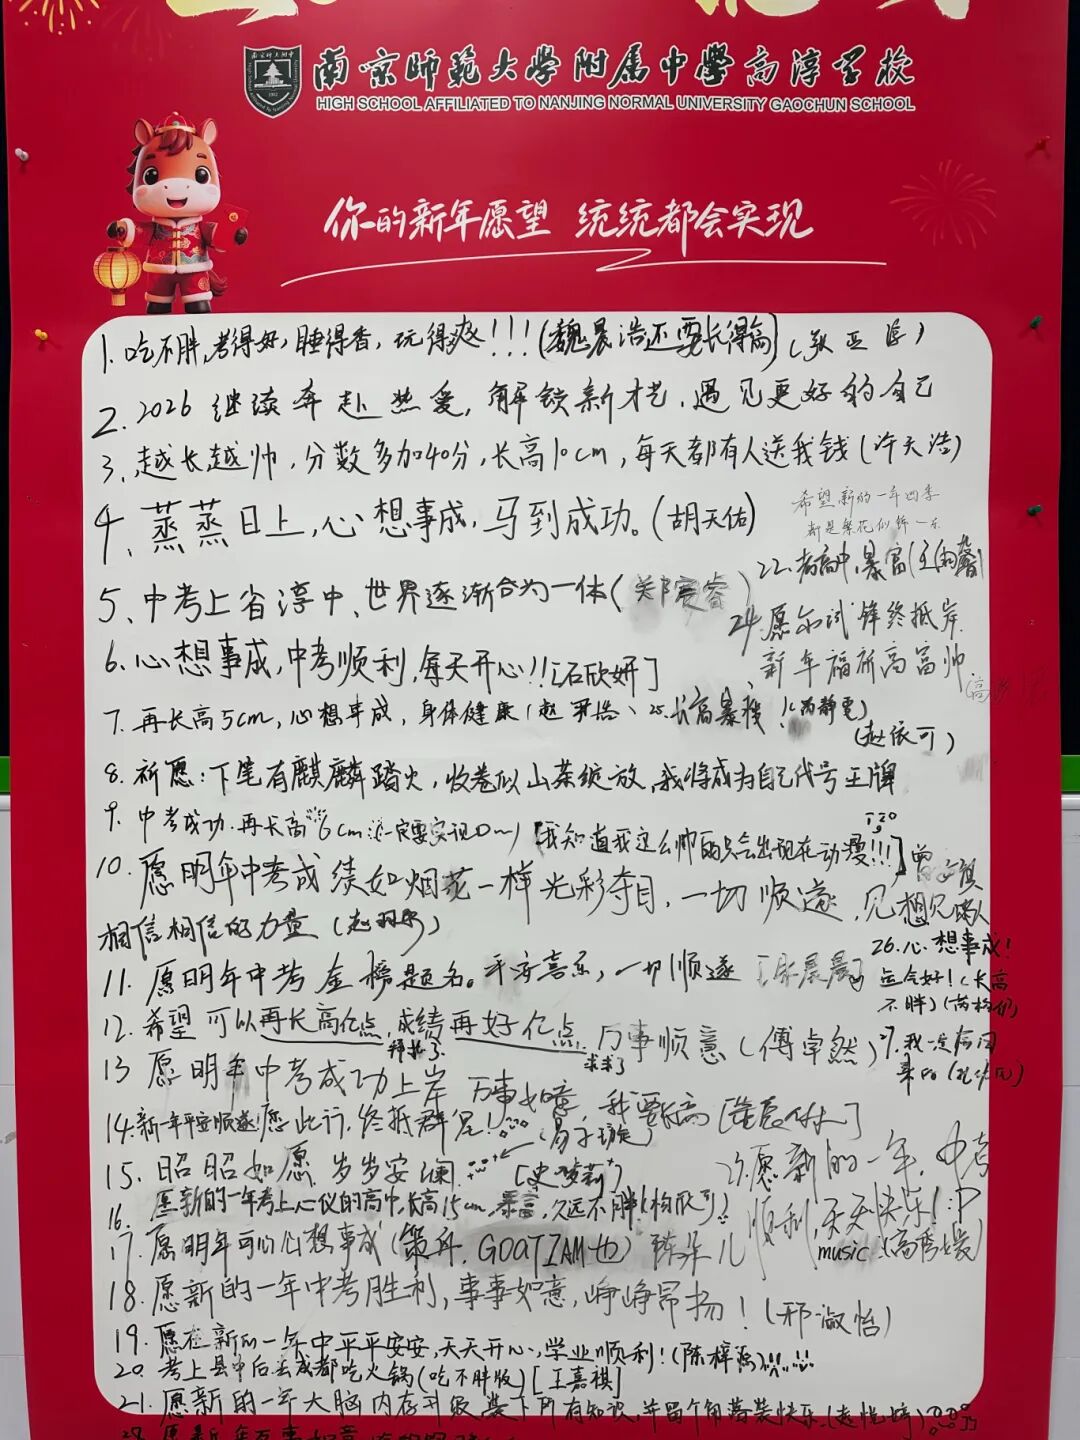 南京师范大学附属中学高淳学校
HIGH SCHOOL AFFILIATED TO NANJING NORMAL UNIVERSITY GAOCHUN SCHOOL
你的新年愿望 统统都会实现
1. 吃不胖,考得好,睡得香,玩得爽!!!(魏晨浩还要长得高)(张亚
2. 2026 继续奔赴热爱,解锁新才艺,遇见更好的自己
3. 越长越帅,分数多加40分,长高10cm,每天都有人送我钱(许天浩)
希望新的一年四季
都是繁花似锦
4、蒸蒸日上,心想事成,马到成功。(胡天佑)
22. 考高中,暴富
5、中考上省淳中、世界逐渐合为一体(
24. 愿 试锋终抵岸
新年福祈高富帅
6. 心想事成,中考顺利,每天开心!![石欣妍]
7. 再长高5cm,心想事成,身体健康(赵
25. 长高暴
(赵依可)
8. 祈愿:下笔有麒麟踏火,收卷似山茶绽放,我将成为自己代号王牌
9. 中考成功.再长高6cm 一定要实现
[我知道我这么帅的只会出现在动漫!!!]
10. 愿明年中考成绩如烟花一样光彩夺目,一切顺遂,见想见的人
相信相信的力量(赵
11. 愿明年中考金榜题名。平安喜乐,一切顺遂
26. 心想事成!
运气好!(长高
不胖)
12. 希望可以再长高亿点,成绩再好亿点 万事顺意(傅卓然)
拜托了
求求了
27. 我一定
13 愿明年中考成功上岸 万事如意,我要长高
14. 新一年平安顺遂!愿此行,终抵群星!
(易子璇)
15. 昭昭如愿,岁岁安澜
23. 愿新的一年,中考
顺利,天天快乐!:P
music
16. 愿新的一年考上心仪的高中,长高15cm,暴富,久远不胖
17. 愿明年可以心想事成(
18. 愿新的一年中考胜利,事事如意,峥峥昂扬!(邢淑怡)
19. 愿在新的一年中平平安安,天天开心,学业顺利!(陈梓
20. 考上县中后去成都吃火锅(吃不胖版)[王嘉祺]
21. 愿新的一年大脑内存升级装下所有知识,并留个角落装快乐.(赵悦婷)